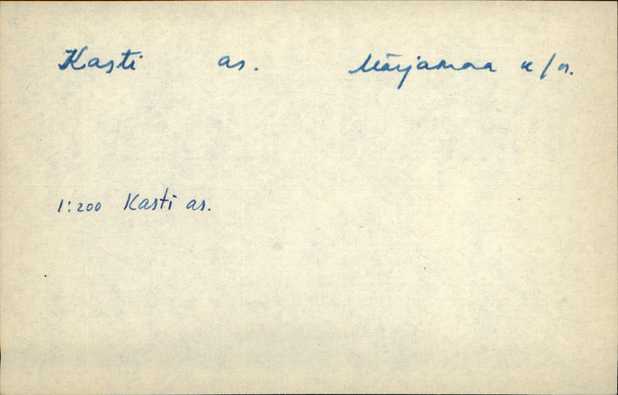 Kasti as. Märjamaa k/n.
1:200 Kasti as.